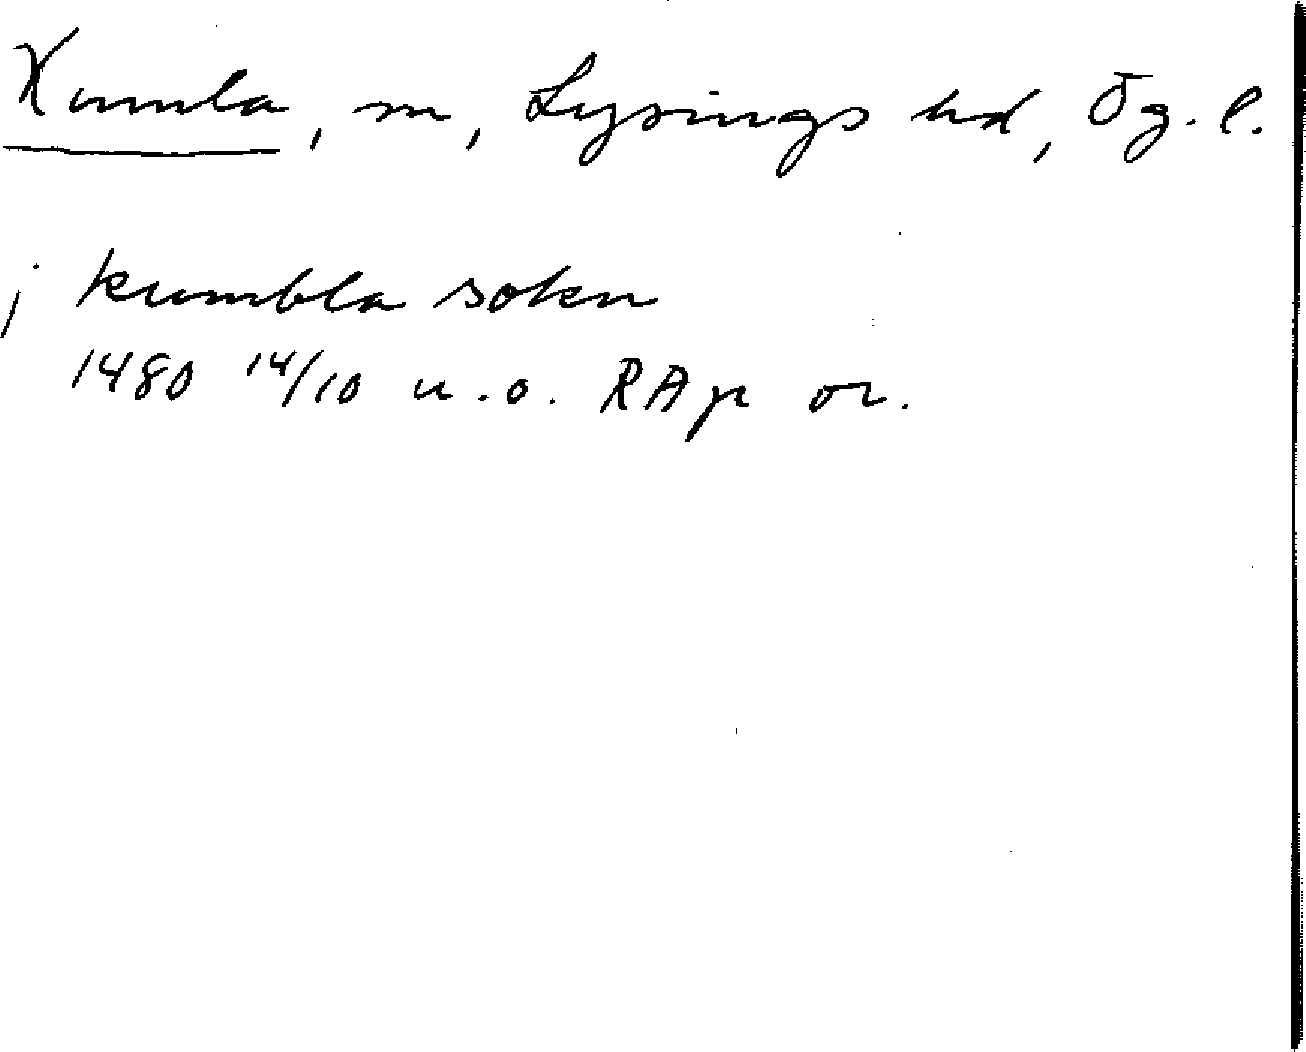 Kumla, sn, Lysings hd, Ög. l.
j kumbla sokn
1480 14/10 u.o. RAp or.